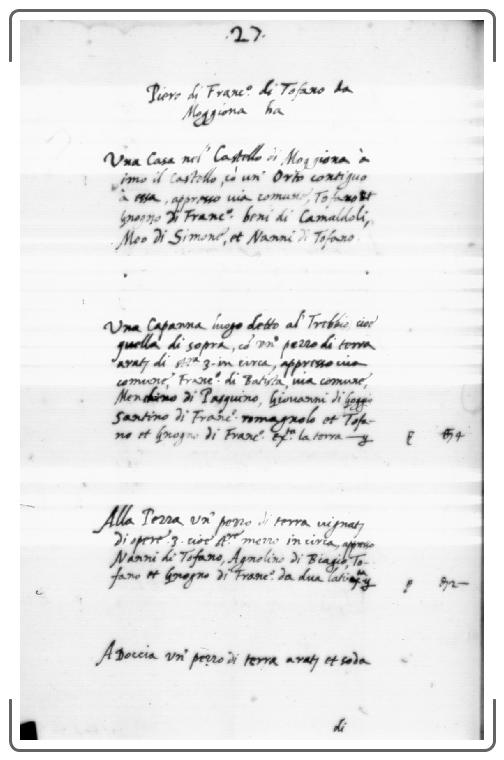 .27.
Piero di Franc.º di Tofano da
Moggiona ha
Una Casa nel Castello di Moggiona à
imo il Castello, cõ un' Orto contiguo
à essa, appresso via comune, Tofano et
Gnogno di Franc.º beni di Camaldoli,
Meo di Simone, et Nanni di Tofano
Una Capanna luogo detto al Trebbio cioè
quella di sopra, cõ un' pezzo di terra
arat; di 3 in circa, appresso via
comune, Franc.º di Batista, via comune,
di Pasquino, Giovanni di Goggio
Santino di Franc.º romagnolo et Tofa-
no et Gnogno di Franc.º la terra
Alla Pezza un' pezzo di terra vignat;
di opere 3 cioè mezzo in circa, appresso
Nanni di Tofano, Agnolino di Biagio, To-
fano et Gnogno di Franc.º da dua lati
A Doccia un' pezzo di terra arat; et soda
di